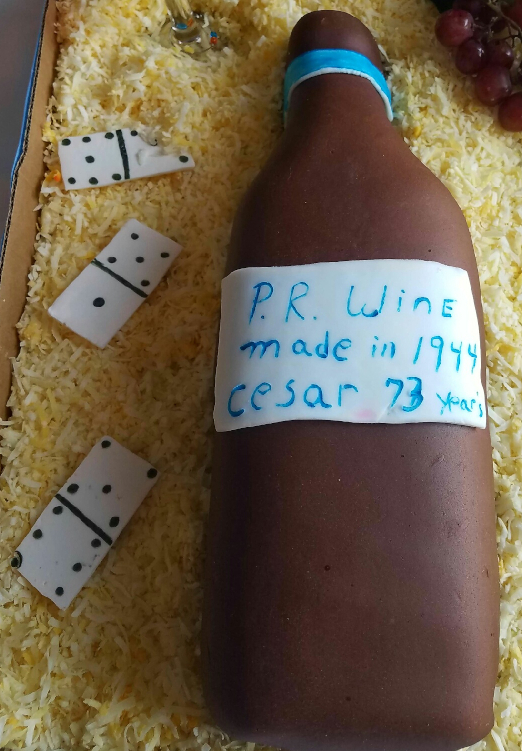 P.R. WinE
made in 1944
cesar 73 year's